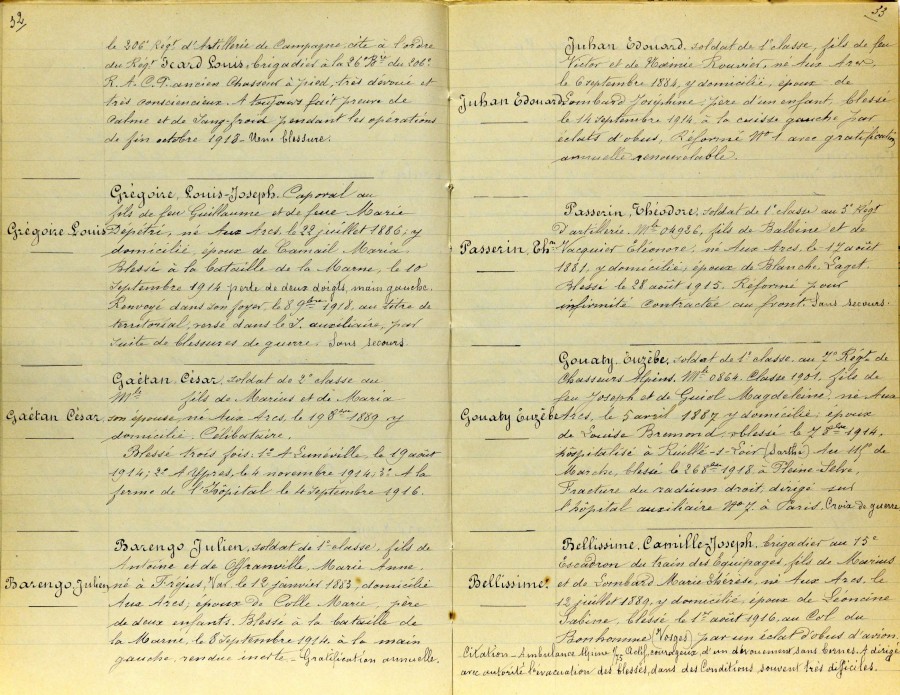 32
le 206e Régt d'Artillerie de Campagne, cité à l'ordre
du Régt Icard Louis, brigadier à la 26e Bie du 206e
R. A. C. P. ancien Chasseur à pied, très dévoué et
très consciencieux. A toujours fait preuve de
Calme et de Sang-froid pendant les opérations
de fin octobre 1918 - Une blessure.
Grégoire, Louis-Joseph. Caporal au
fils de feu Guillaume et de feue Marie
Grégoire Louis
Depétri, né Aux Arcs, le 22 juillet 1886, y
domicilié, époux de Camail Maria.
Blessé à la bataille de la Marne, le 10
Septembre 1914 perte de deux doigts, main gauche.
Renvoyé dans son foyer, le 8 9bre 1918, au titre de
territorial, versé dans le S. auxiliaire, par
suite de blessures de guerre. Sans secours.
Gaëtan, César, soldat de 2e classe au
Mle fils de Marius et de Maria
Gaëtan César
son épouse, né Aux Arcs, le 19 8bre 1889, y
domicilié. Célibataire.
Blessé trois fois: 1e A Lunéville, le 19 août
1914; 2e A Ypres, le 4 novembre 1914; 3e A la
ferme de l'Hôpital le 4 Septembre 1916.
Barengo Julien, soldat de 1e classe, fils de
Antoine et de Offranville, Marie Anne.
Barengo Julien
né à Fréjus, Var, le 1e janvier 1883, domicilié
Aux Arcs, époux de Colle Marie, père
de deux enfants. Blessé à la bataille de
la Marne, le 8 Septembre 1914, à la main
gauche, rendue inerte - Gratification annuelle.
33
Juhan Edouard, soldat de 1e classe, fils de feu
Victor et de Noémie Rouvier, né Aux Arcs
le 6 septembre 1884, y domicilié, époux de
Juhan Edouard
Lombard Joséphine; père d'un enfant, blessé
le 14 Septembre 1914, à la cuisse gauche par
éclats d'obus, Réformé No 1 avec gratification
annuelle renouvelable.
Passerin, Théodore, soldat de 1e classe au 5e Régt
D'artillerie, Mle 04926, fils de Balbine et de
Passerin, Thre
Vacquier Eléonore, né Aux Arcs, le 17 août
1881, y domicilié, époux de Blanche Laget.
Blessé le 28 août 1915. Réformé pour
infirmité Contractée au front. Sans secours.
Gouaty, Euzèbe, soldat de 1e classe au 7e Régt de
Chasseurs Alpins, Mle 0864. Classe 1901, fils de
feu Joseph et de Guiol Magdeleine, né Aux
Gouaty Euzèbe
Arcs, le 5 avril 1887, y domicilié, époux
de Louise Brémond, blessé le 7 8bre 1914,
hospitalisé à Ruillé-s-Loir (Sarthe) Au
Marche, blessé le 26 8bre 1918, à Pleine-Selve,
Fracture du radium droit, dirigé sur
l'hôpital auxiliaire No 7. à Paris. Croix de guerre
Bellissime, Camille-Joseph, brigadier au 15e
Escadron du train des Equipages, fils de Marius
Bellissime.
et de Lombard Marie Thérèse, né Aux Arcs, le
12 juillet 1889, y domicilié, époux de Léoncine
Fabine, blessé le 1er août 1916, au Col du
Bonhomme, (Vosges) par un éclat d'obus d'avion.
Citation - Ambulance Alpine 1/75 Actif, courageux, d'un dévouement sans bornes. A dirigé
avec autorité l'évacuation des blessés, dans des Conditions souvent très difficiles.